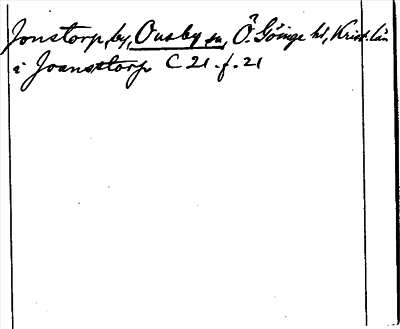 Jonstorp, by, Ousby sn, Ö. Göinge hd, Krist. län
i Joanstorp C 21. f. 21